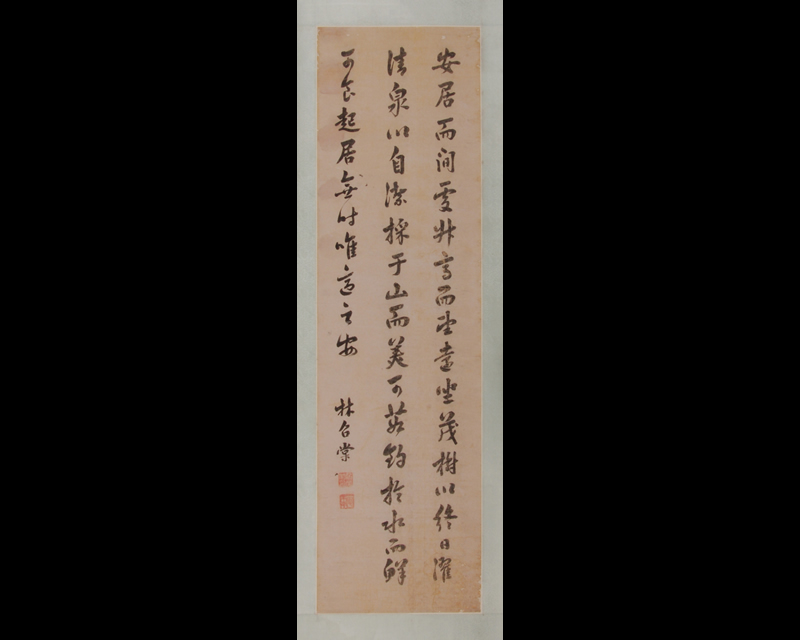 安居而閒處升高而望遠坐茂樹以終日濯
清泉以自潔採于山而美可茹釣於水而鮮
可食起居無時唯適之安
林召棠